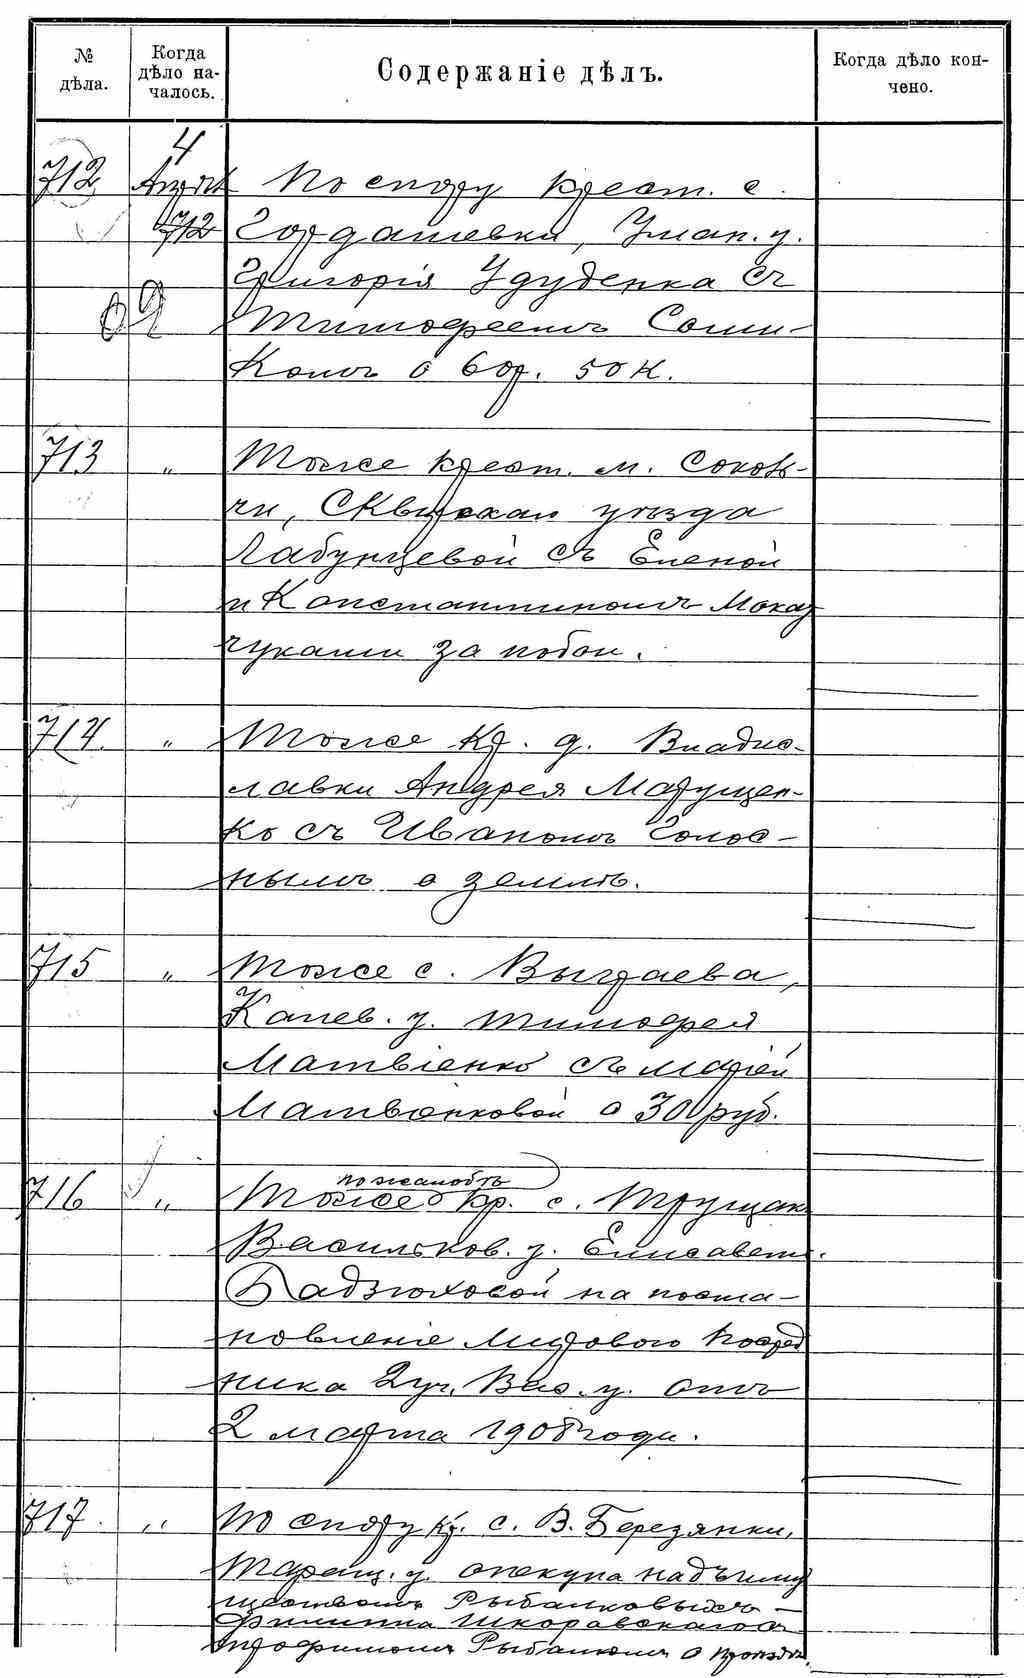 № дѣла.
Когда дѣло на-чалось.
Содержаніе дѣлъ.
Когда дѣло кон-чено.
4
712 Апрѣл По спору крест. с.
712 Гордашевки, Уман. у.
Григорія Удуденка съ
Тимофеемъ Соши-
комъ о 60р. 50к.
713 " Тоже крест. м. Соколь-
чи, Сквирскаго уѣзда
Лабунцевой съ Еленой
и Константиномъ Мока
чуками за побои.
714. " Тоже Кр. д. Владис-
лавки Андрея Марущен-
ко съ Иваномъ Голос-
нымъ о землѣ.
715 " Тоже с. Выграева,
Канев. у. Тимофея
Матвіенко съ Маріей
Матвѣенковой о 30 руб.
по жалобѣ
716 " Тоже кр. с. Трущак
Васильков. у. Елисавет.
Бадзюховой на поста-
новленіе Мирового Посред
ника 2 уч. Вас. у. отъ
2 марта 1908 года.
717. " По спору кр. с. В. Березянки,
Таращ. у. опекуна надъ иму
ществомъ Рыбалковыхъ
Филиппа Шкоравскаго съ
Трофимомъ Рыбалкомъ о